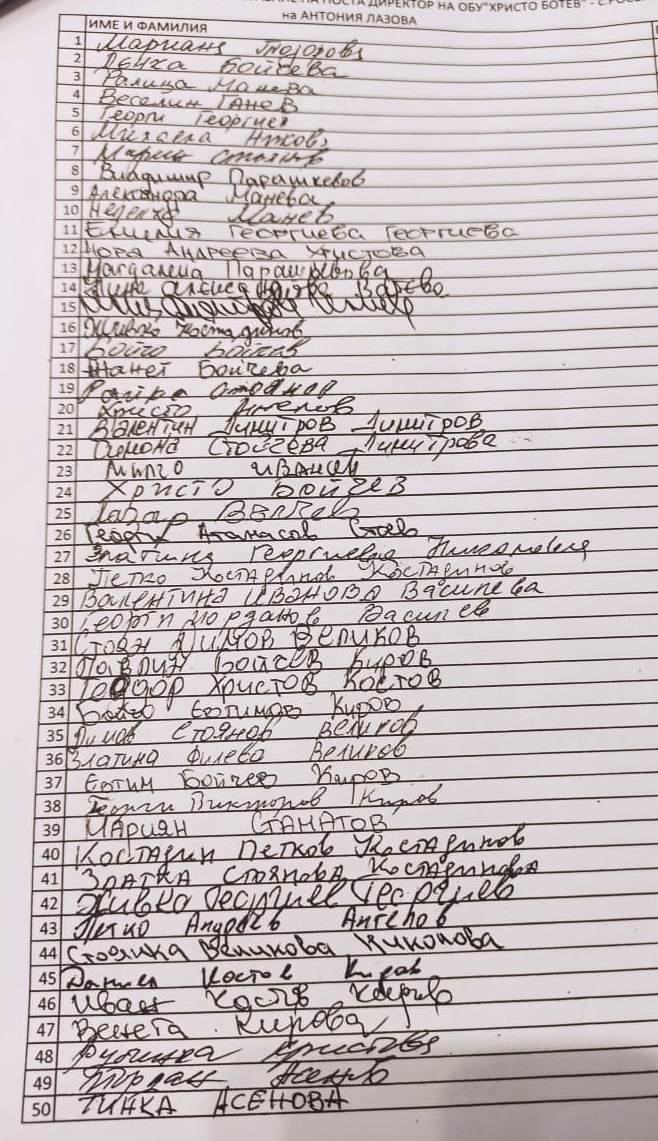 НА ПОСТА ДИРЕКТОР НА ОБУ"ХРИСТО БОТЕВ" -
на АНТОНИЯ ЛАЗОВА
ИМЕ И ФАМИЛИЯ
1 Мариана Тодорова
2 Денка Бойчева
3 Ралица Манева
4 Веселин Ганев
5 Георги Георгиев
6 Михаела
7 Марин Стоянов
8 Владимир Парашкевов
9 Александра Манева
10 Неделчо Манев
11 Емилия Георгиева Георгиева
12 Нора Андреева Христова
13 Магдалена Парашкевова
14 Александрова
15
16 Живко Костадинов
17 Бойчо Бойчев
18 Жанет Бойчева
19 Стоянов
20 Христо Ангелов
21 Валентин Димитров Димитров
22 Симона Стойчева Димитрова
23 Минчо Иванов
24 Христо Бойчев
25 Лазар Велчев
26 Георги Атанасов
27 Златина Георгиева Николова
28 Петко Костадинов Костадинов
29 Валентина Иванова Василева
30 Георги Йорданов Василев
31 Стоян Димов Великов
32 Павлин Бойчев Киров
33 Тодор Христов Костов
34 Бойчо Евтимов Киров
35 Димов Стоянов Великов
36 Златина Филева Великов
37 Евтим Бойчев Киров
38 Георги Викторов Киров
39 Мариян Стаматов
40 Костадин Петков Костадинов
41 Златка Стоянова Костадинова
42 Живко Георгиев Георгиев
43 Петко Андреев Ангелов
44 Стоянка Великова Николова
45 Даниел Костов Киров
46 Иван Костов
47 Венета Кирова
48 Румянка Христова
49 Асенов
50 Тинка Асенова